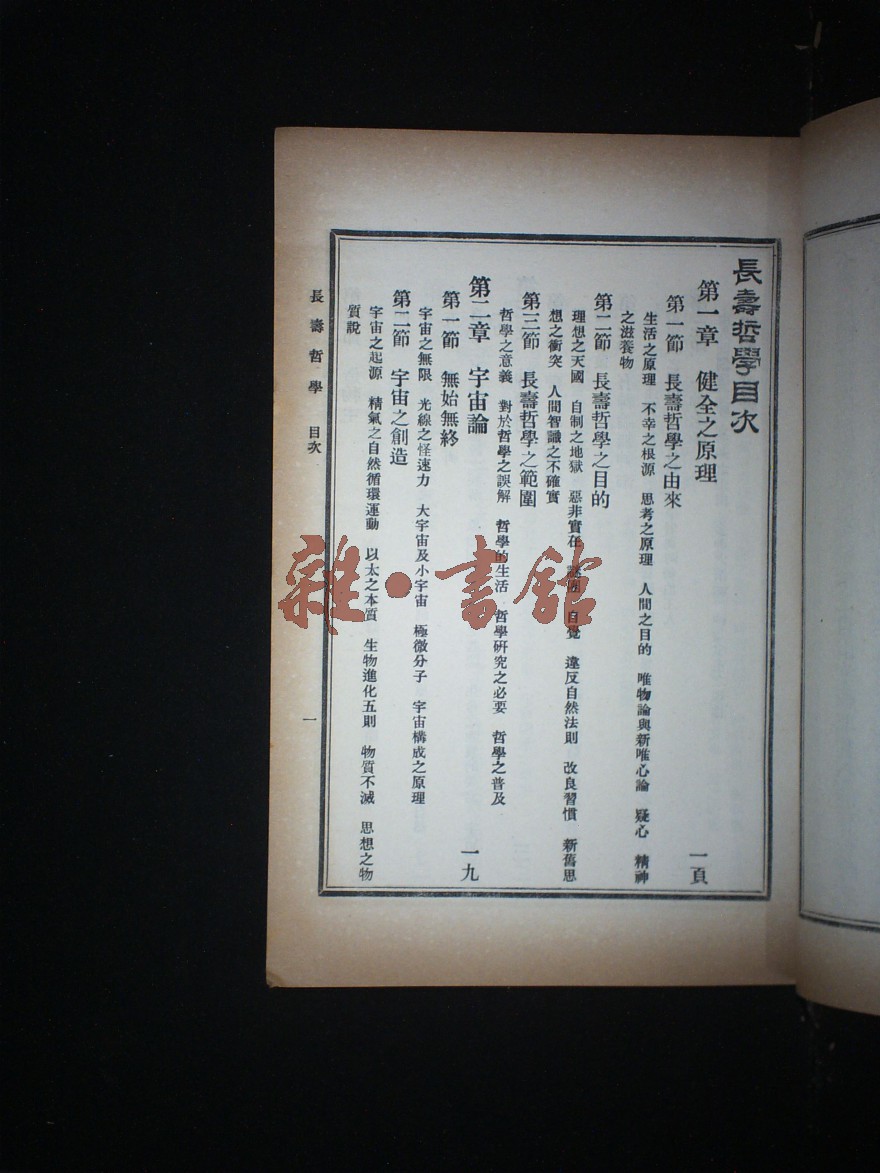 長壽哲學目次
第一章　健全之原理　一頁
第一節　長壽哲學之由來
生活之原理　不幸之根源　思考之原理　人間之目的　唯物論與新唯心論　疑心　精神
之滋養物
第二節　長壽哲學之目的
理想之天國　自制之地獄　惡非實在　自覺　違反自然法則　改良習慣　新舊思
想之衝突　人間智識之不確實
第三節　長壽哲學之範圍
哲學之意義　對於哲學之誤解　哲學的生活　哲學研究之必要　哲學之普及
第二章　宇宙論　一九
第一節　無始無終
宇宙之無限　光線之怪速力　大宇宙及小宇宙　極微分子　宇宙構成之原理
第二節　宇宙之創造
宇宙之起源　精氣之自然循環運動　以太之本質　生物進化五則　物質不滅　思想之物
質說
長壽哲學　目次
一
雜·書館